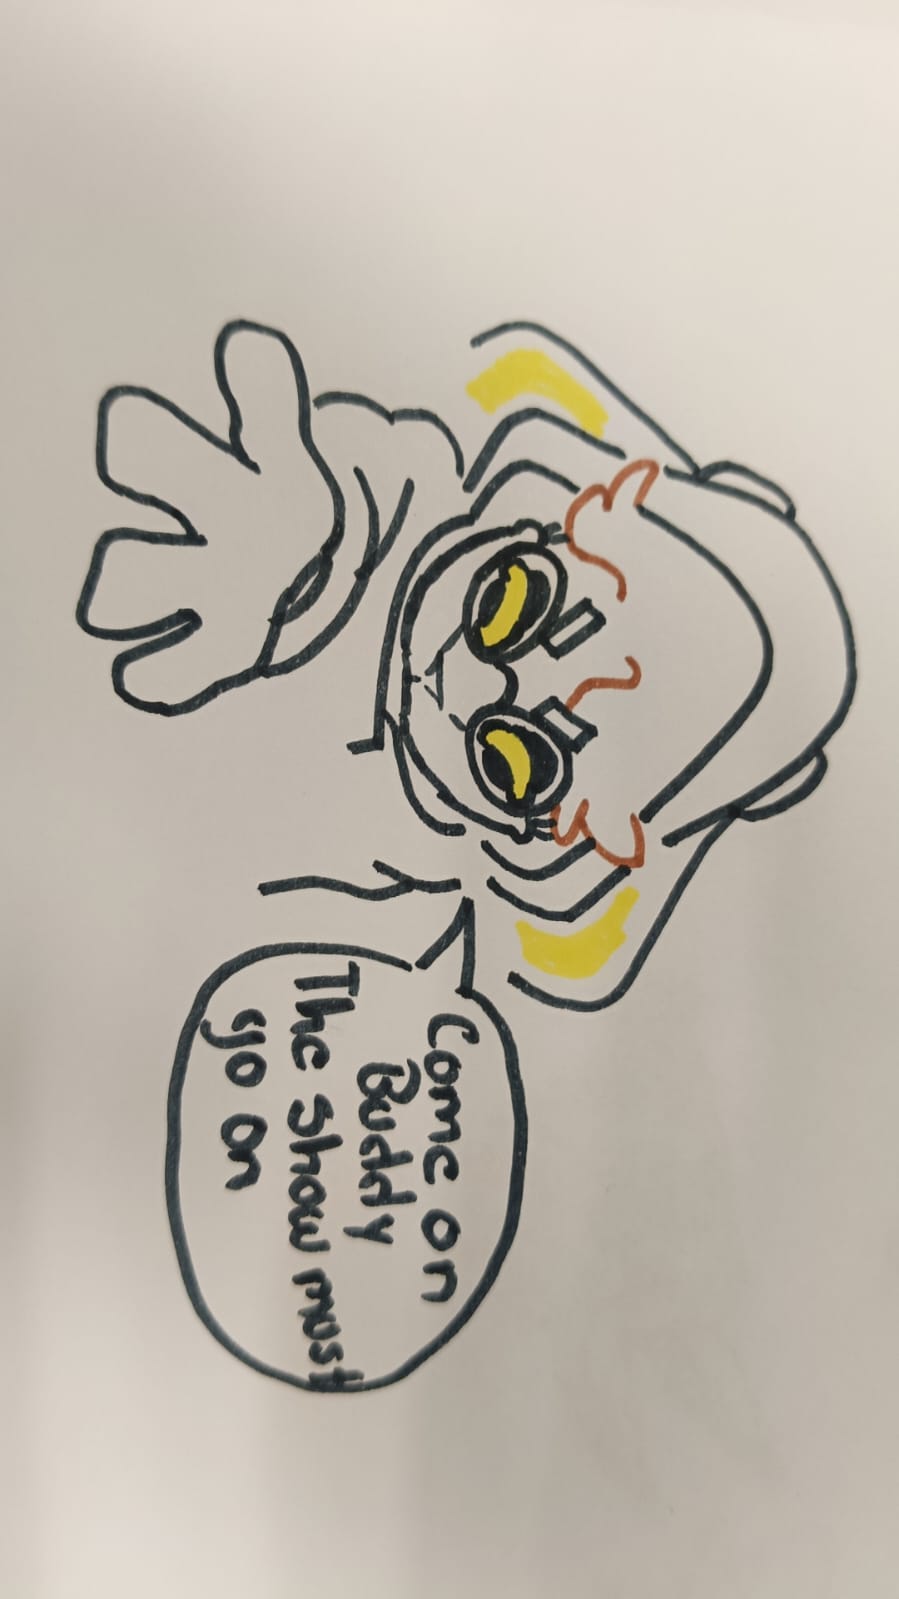 Come on
Buddy
The show must
go on